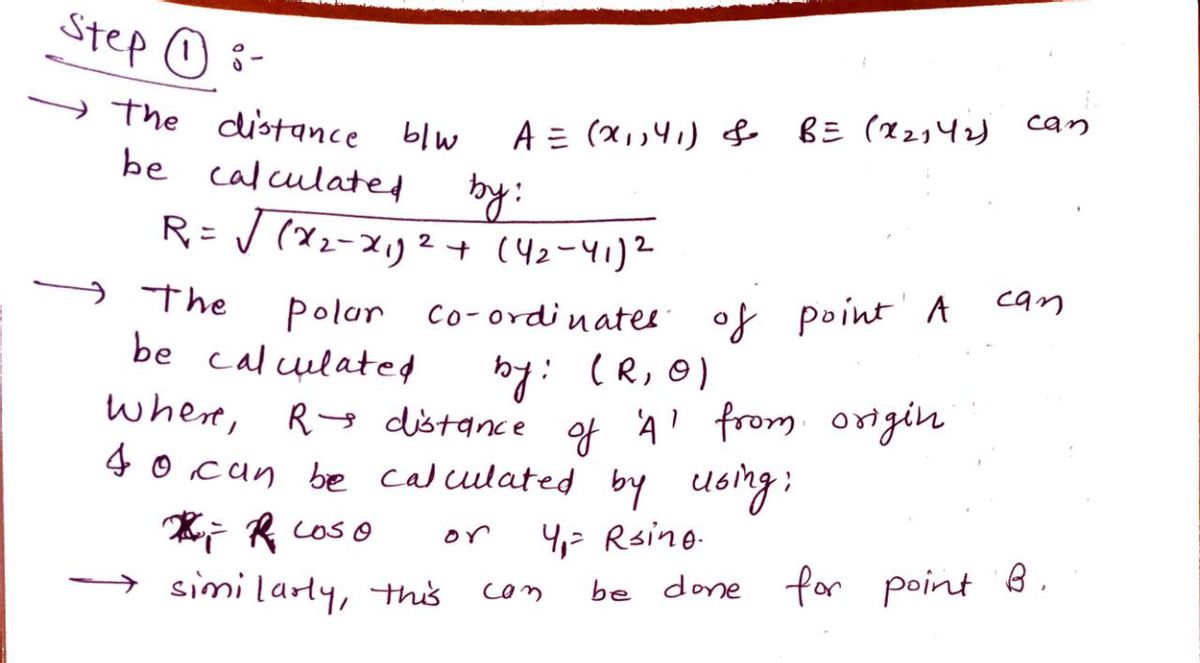 Step ① :-
→ The distance b/w A ≡ (x₁,y₁) & B≡ (x₂,y₂) can
be calculated by:
R = √(x₂-x₁)² + (y₂-y₁)²
→ The polar co-ordinates of point A can
be calculated by: (R, θ)
Where, R→ distance of 'A' from origin
& θ can be calculated by using;
x₁= R cosθ or y₁= Rsinθ.
→ similarly, this can be done for point B.